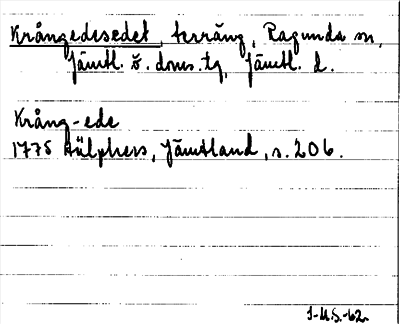 Krångedesedet, terräng, Ragunda sn,
Jämtl. ö. doms. tg, Jämtl. l.
Krång-ede
1775 Hülphers, Jämtland, s. 206.